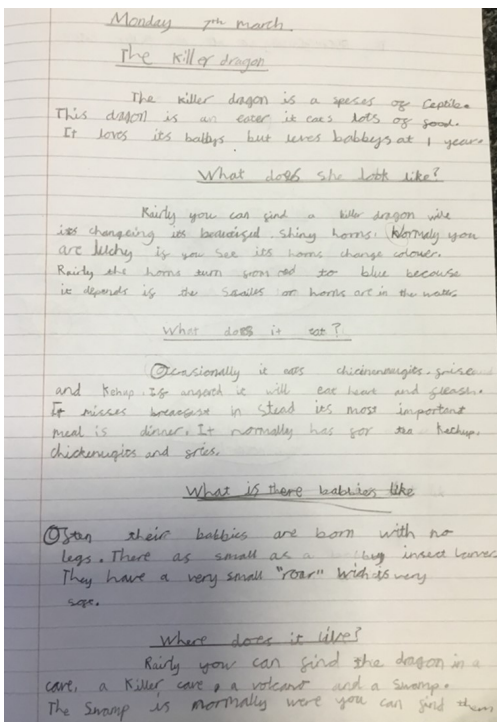 Monday 7th march.
The killer dragon
The killer dragon is a speses of reptile.
This dragon is an eater it eats lots of food.
It loves its babbys but leves babbeys at 1 year
What does she look like?
Rairly you can find a killer dragon wile
its changeing its beautised shiny horns. Normaly you
are luchy if you see its horns change colouer.
Rairly the horns turn from red to blue because
it depends if the scailes or horns are in the water.
What does it eat?
Ocasionally it eats
and Kehup. If angerd it will eat heart and fleash.
It misses breacfast in stead its most important
meal is dinner. It normally has for tea Kechup,
chickenugits and fries.
What is there babbies like
Often their babbies are born with no
legs. There as small as a bug insect larver
They have a very small "roar" Wich is very
soft.
Where does it live?
Rairly you can find the dragon in a
cave, a Killer cave, a volcano and a Swamp.
The Swamp is normally were you can find them